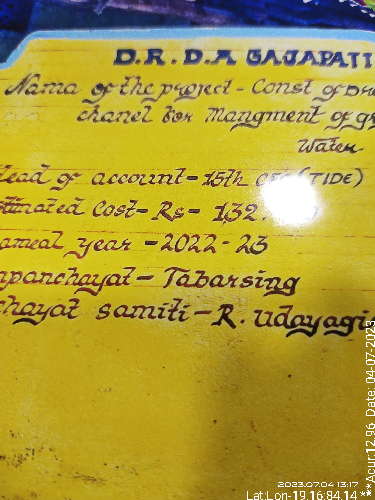 D.R.D.A GAJAPATI
Nama of the project - Const of Dr
chanel for Mangment of gr
Water
Head of account - 15th (TIDE)
stimated Cost - Rs - 1,32,
ameal year - 2022 - 23
npanchayat - Tabarsing
chayat samiti - R. Udayagi
2023.07.04 13:17
Lat:Lon-19.16:84.14 ***Acur:12.96 Date: 04-07-2023